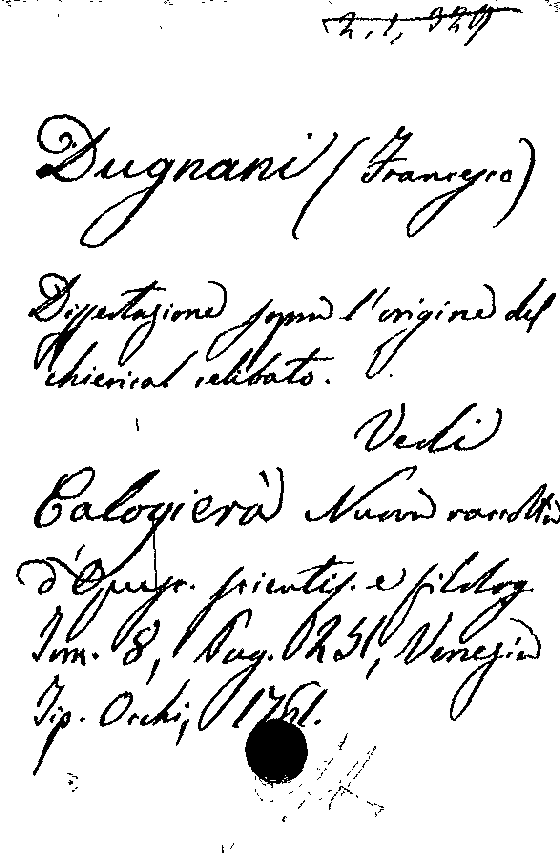 2, 1, 329
Dugnani (Francesco)
Dissertazione sopra l'origine del
chierical celibato.
Vedi
Calogierà Nuova raccolta
d'Opusc. scientif. e filolog
Tom. 8, Pag. 251, Venezia
Tip. Occhi, 1761.